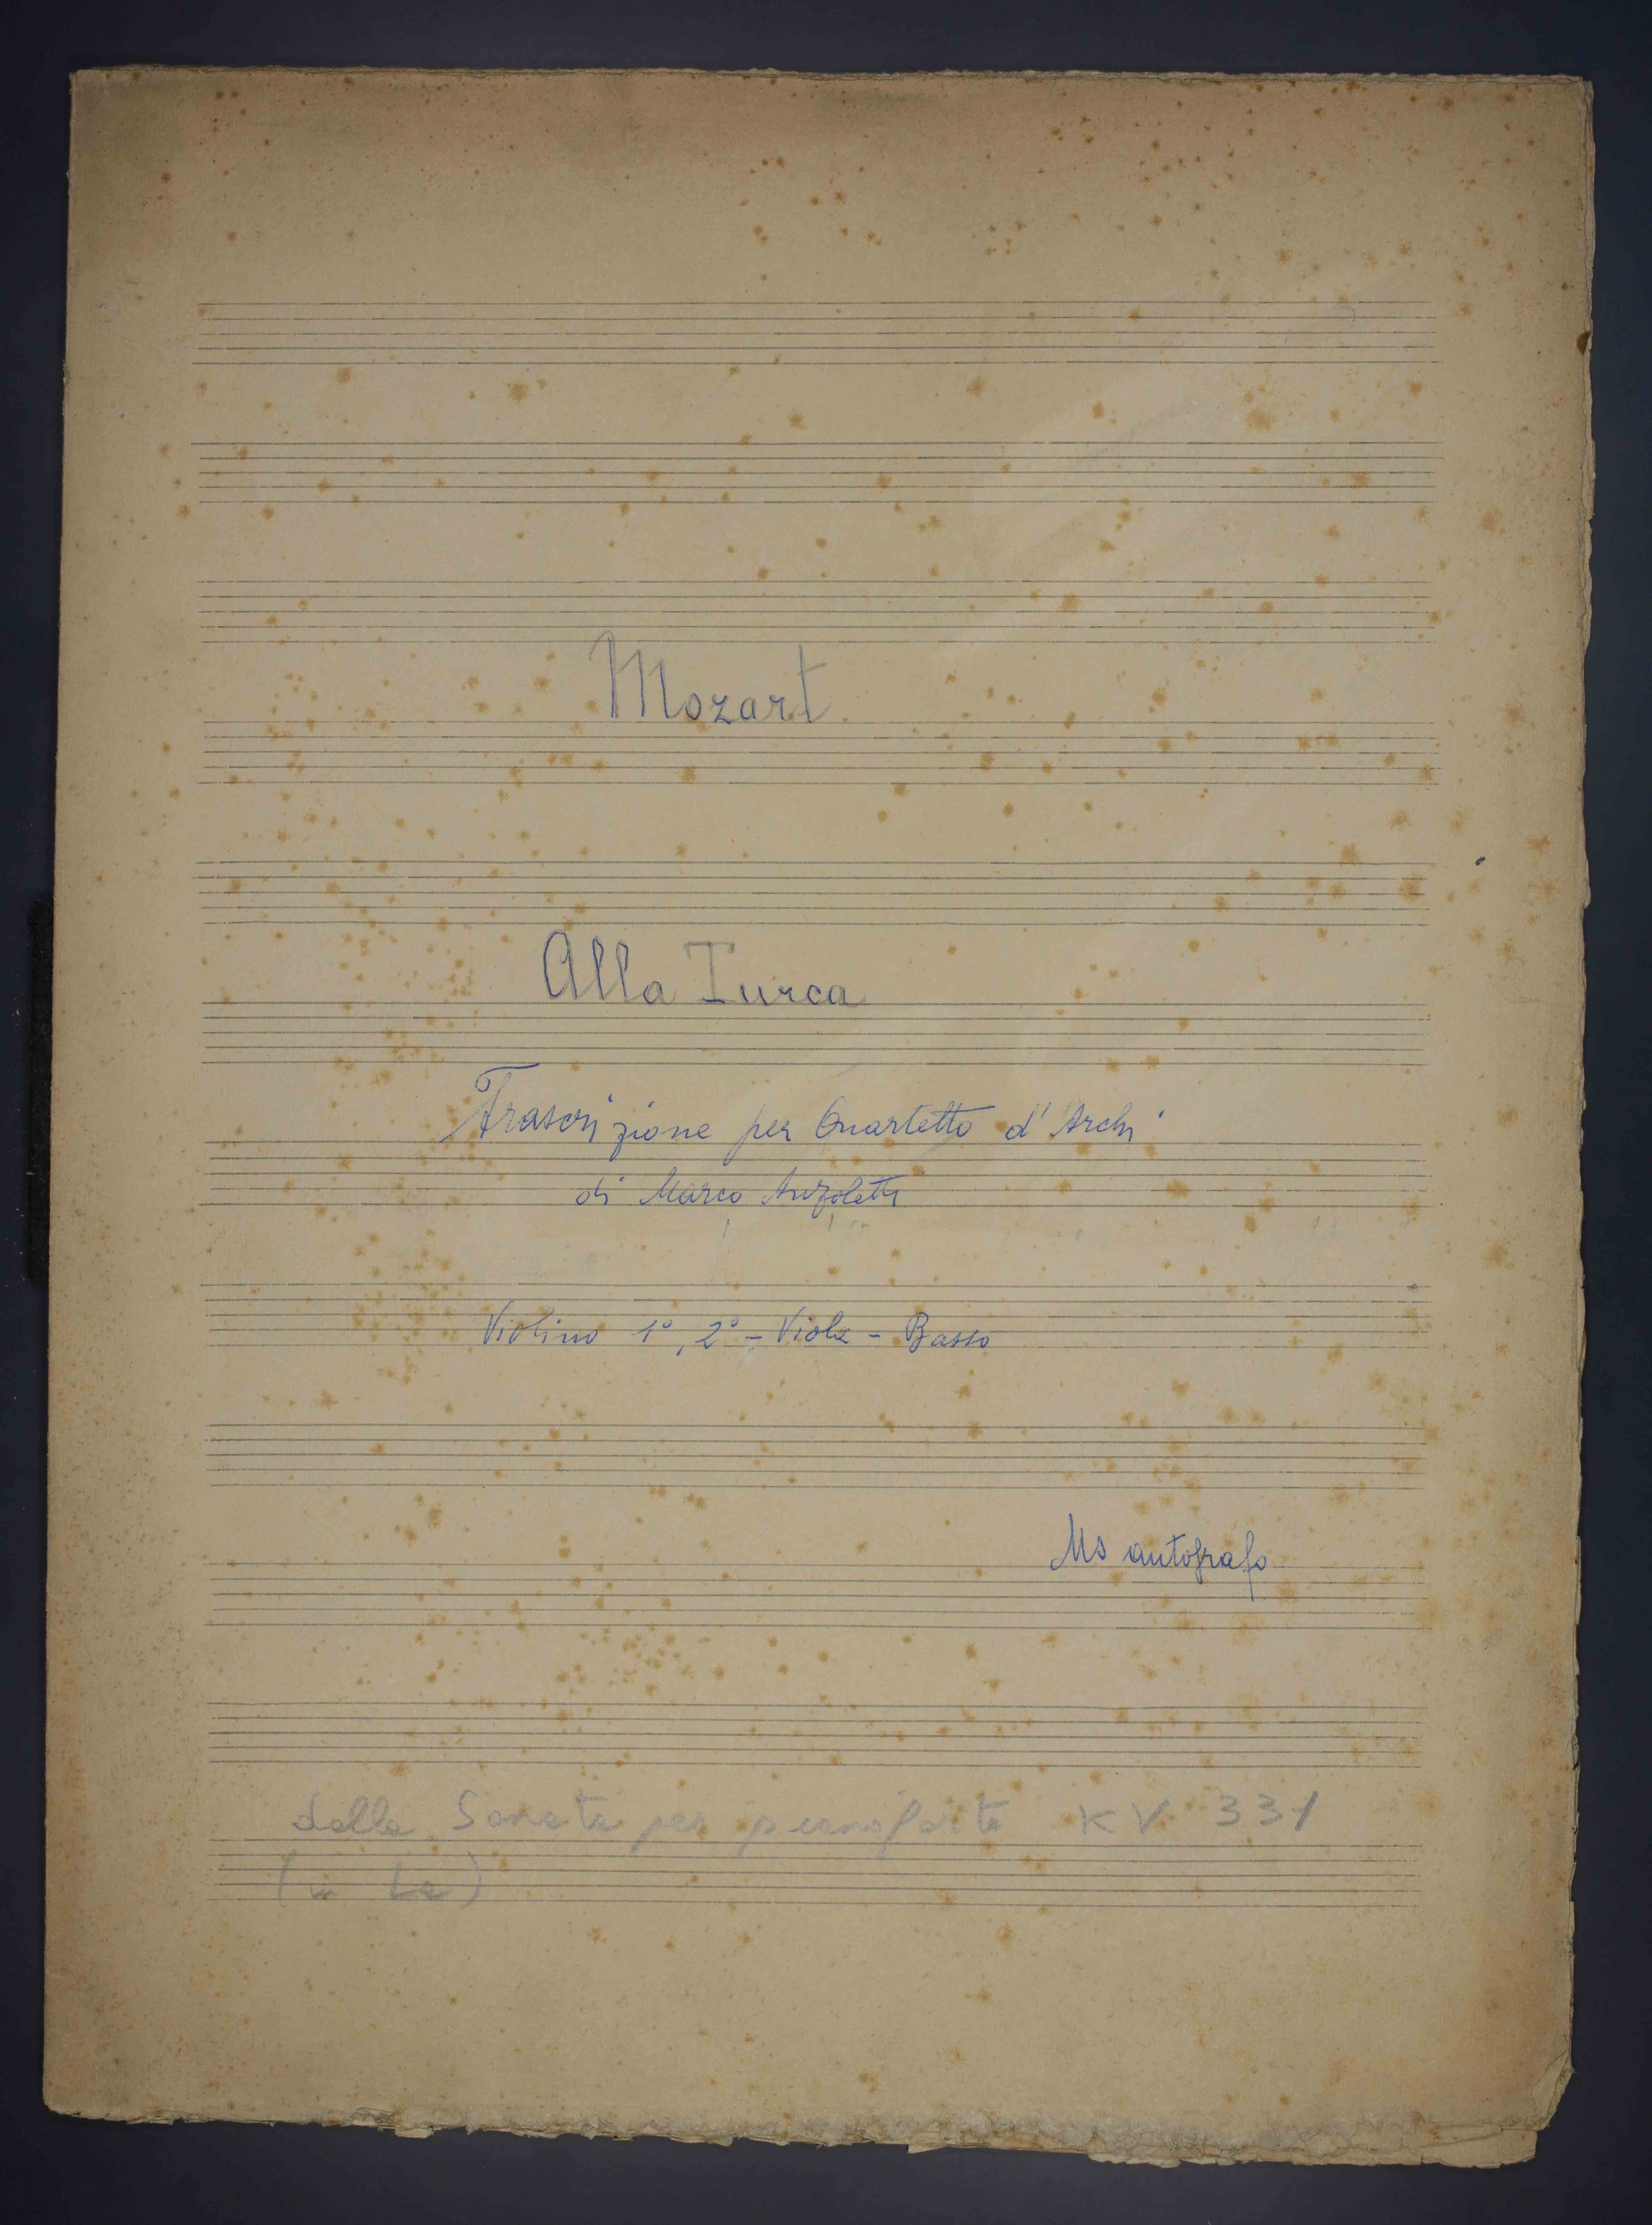 Mozart.
Alla Turca
Trascrizione per Quartetto d'Archi
di Marco Anzoletti
Violino 1°, 2° - Viola - Basso
Ms autografo
dalla Sonata per pianoforte KV 331
(in La)